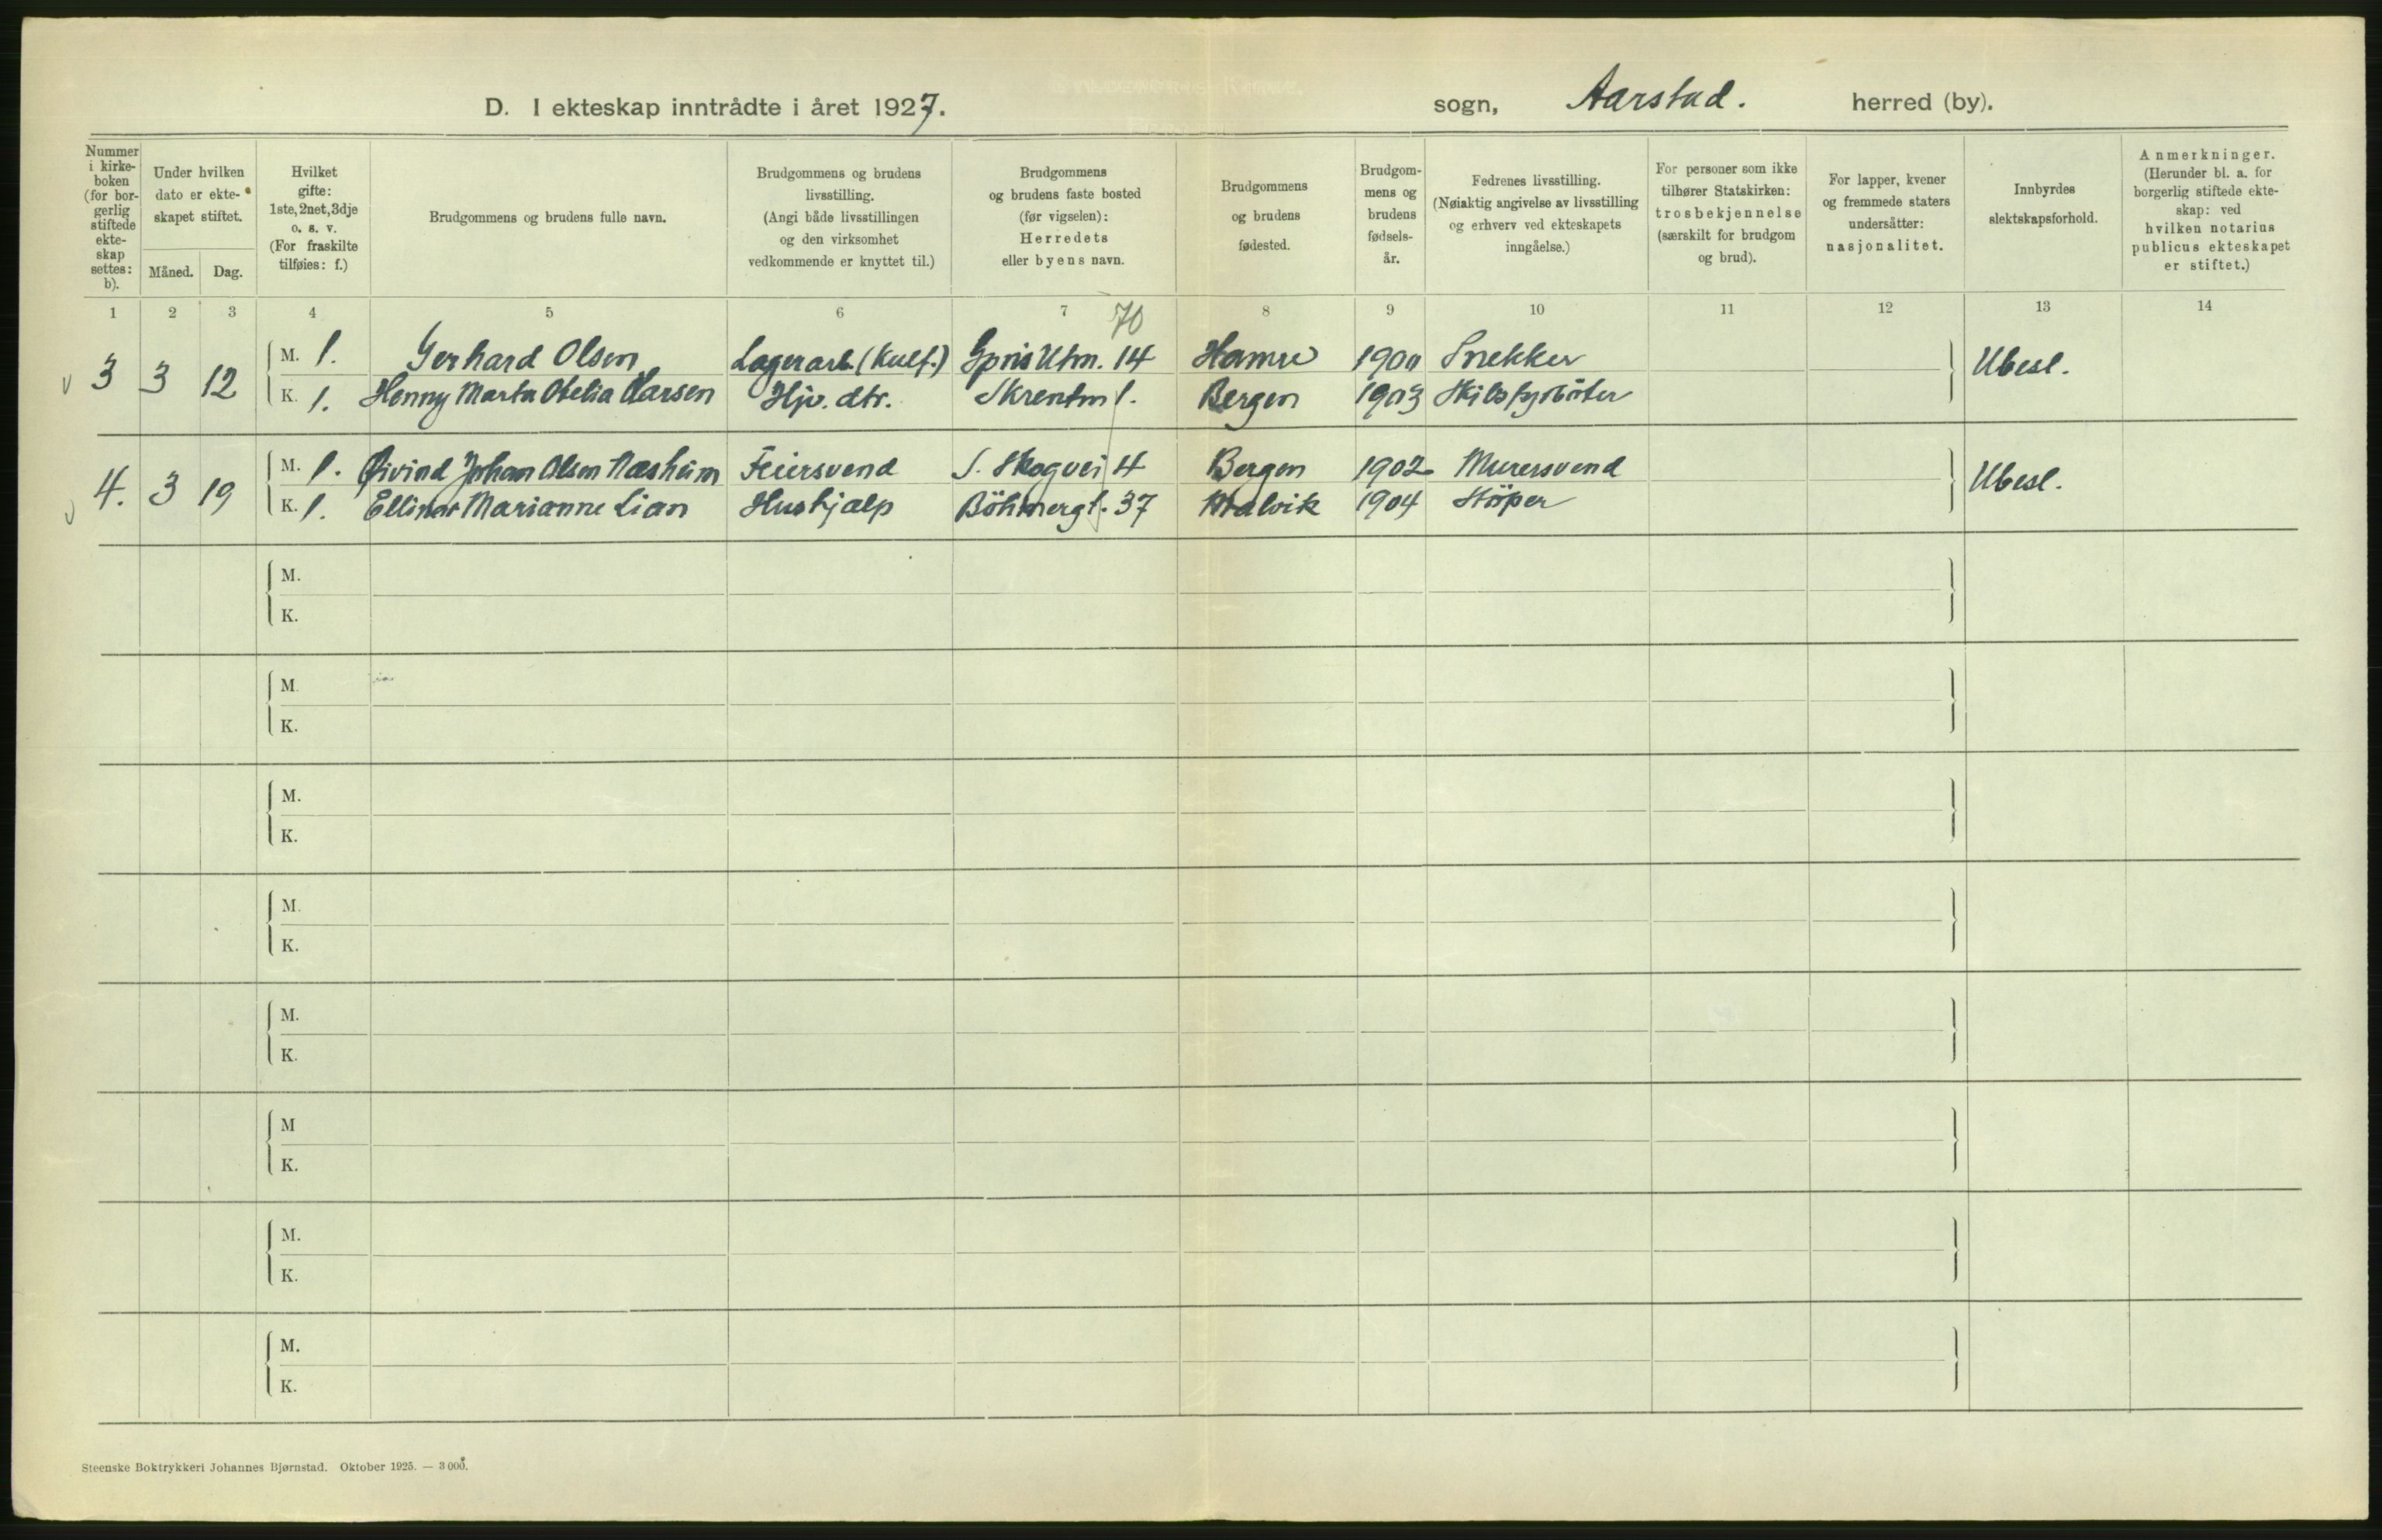 D. I ekteskap inntrådte i året 1927. sogn, Aarstad. herred (by).
Nummer i kirke-boken (for bor-gerlig stiftede ekte-skap settes: b).
Under hvilken dato er ekte-skapet stiftet.
Måned. Dag.
Hvilket gifte: 1ste, 2net, 3dje o. s. v. (For fraskilte tilføies: f.)
Brudgommens og brudens fulle navn.
Brudgommens og brudens livsstilling. (Angi både livsstillingen og den virksomhet vedkommende er knyttet til.)
Brudgommens og brudens faste bosted (før vigselen): Herredets eller byens navn.
Brudgommens og brudens fødested.
Brudgom-mens og brudens fødsels-år.
Fedrenes livsstilling. (Nøiaktig angivelse av livsstilling og erhverv ved ekteskapets inngåelse.)
For personer som ikke tilhører Statskirken: trosbekjennelse (særskilt for brudgom og brud).
For lapper, kvener og fremmede staters undersåtter: nasjonalitet.
Innbyrdes slektskapsforhold.
Anmerkninger. (Herunder bl. a. for borgerlig stiftede ekte-skap: ved hvilken notarius publicus ekteskapet er stiftet.)
1 2 3 4 5 6 7 8 9 10 11 12 13 14
70
3 3 12 M. 1. Gerhard Olsen Lagerarb. 14 Hamre 1900 Snekker Ubesl.
K. 1. Henny Marta Larsen Hjv. dtr. 1. Bergen 1903
4. 3 19 M. 1. Øivind Johan Olsen Næsheim Feiersvend S. Skogvei 4 Bergen 1902 Murersvend Ubesl.
K. 1. Ellinor Marianne Lian Hushjælp Böhmergt. 37 Malvik 1904 Støper
M.
K.
M.
K.
M.
K.
M.
K.
M.
K.
M
K.
M.
K.
M.
K.
Steenske Boktrykkeri Johannes Bjørnstad. Oktober 1925. — 3 000.